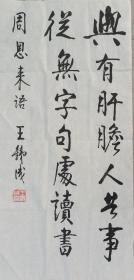 與有肝膽人共事
從無字句處讀書
周恩来语 王铁成